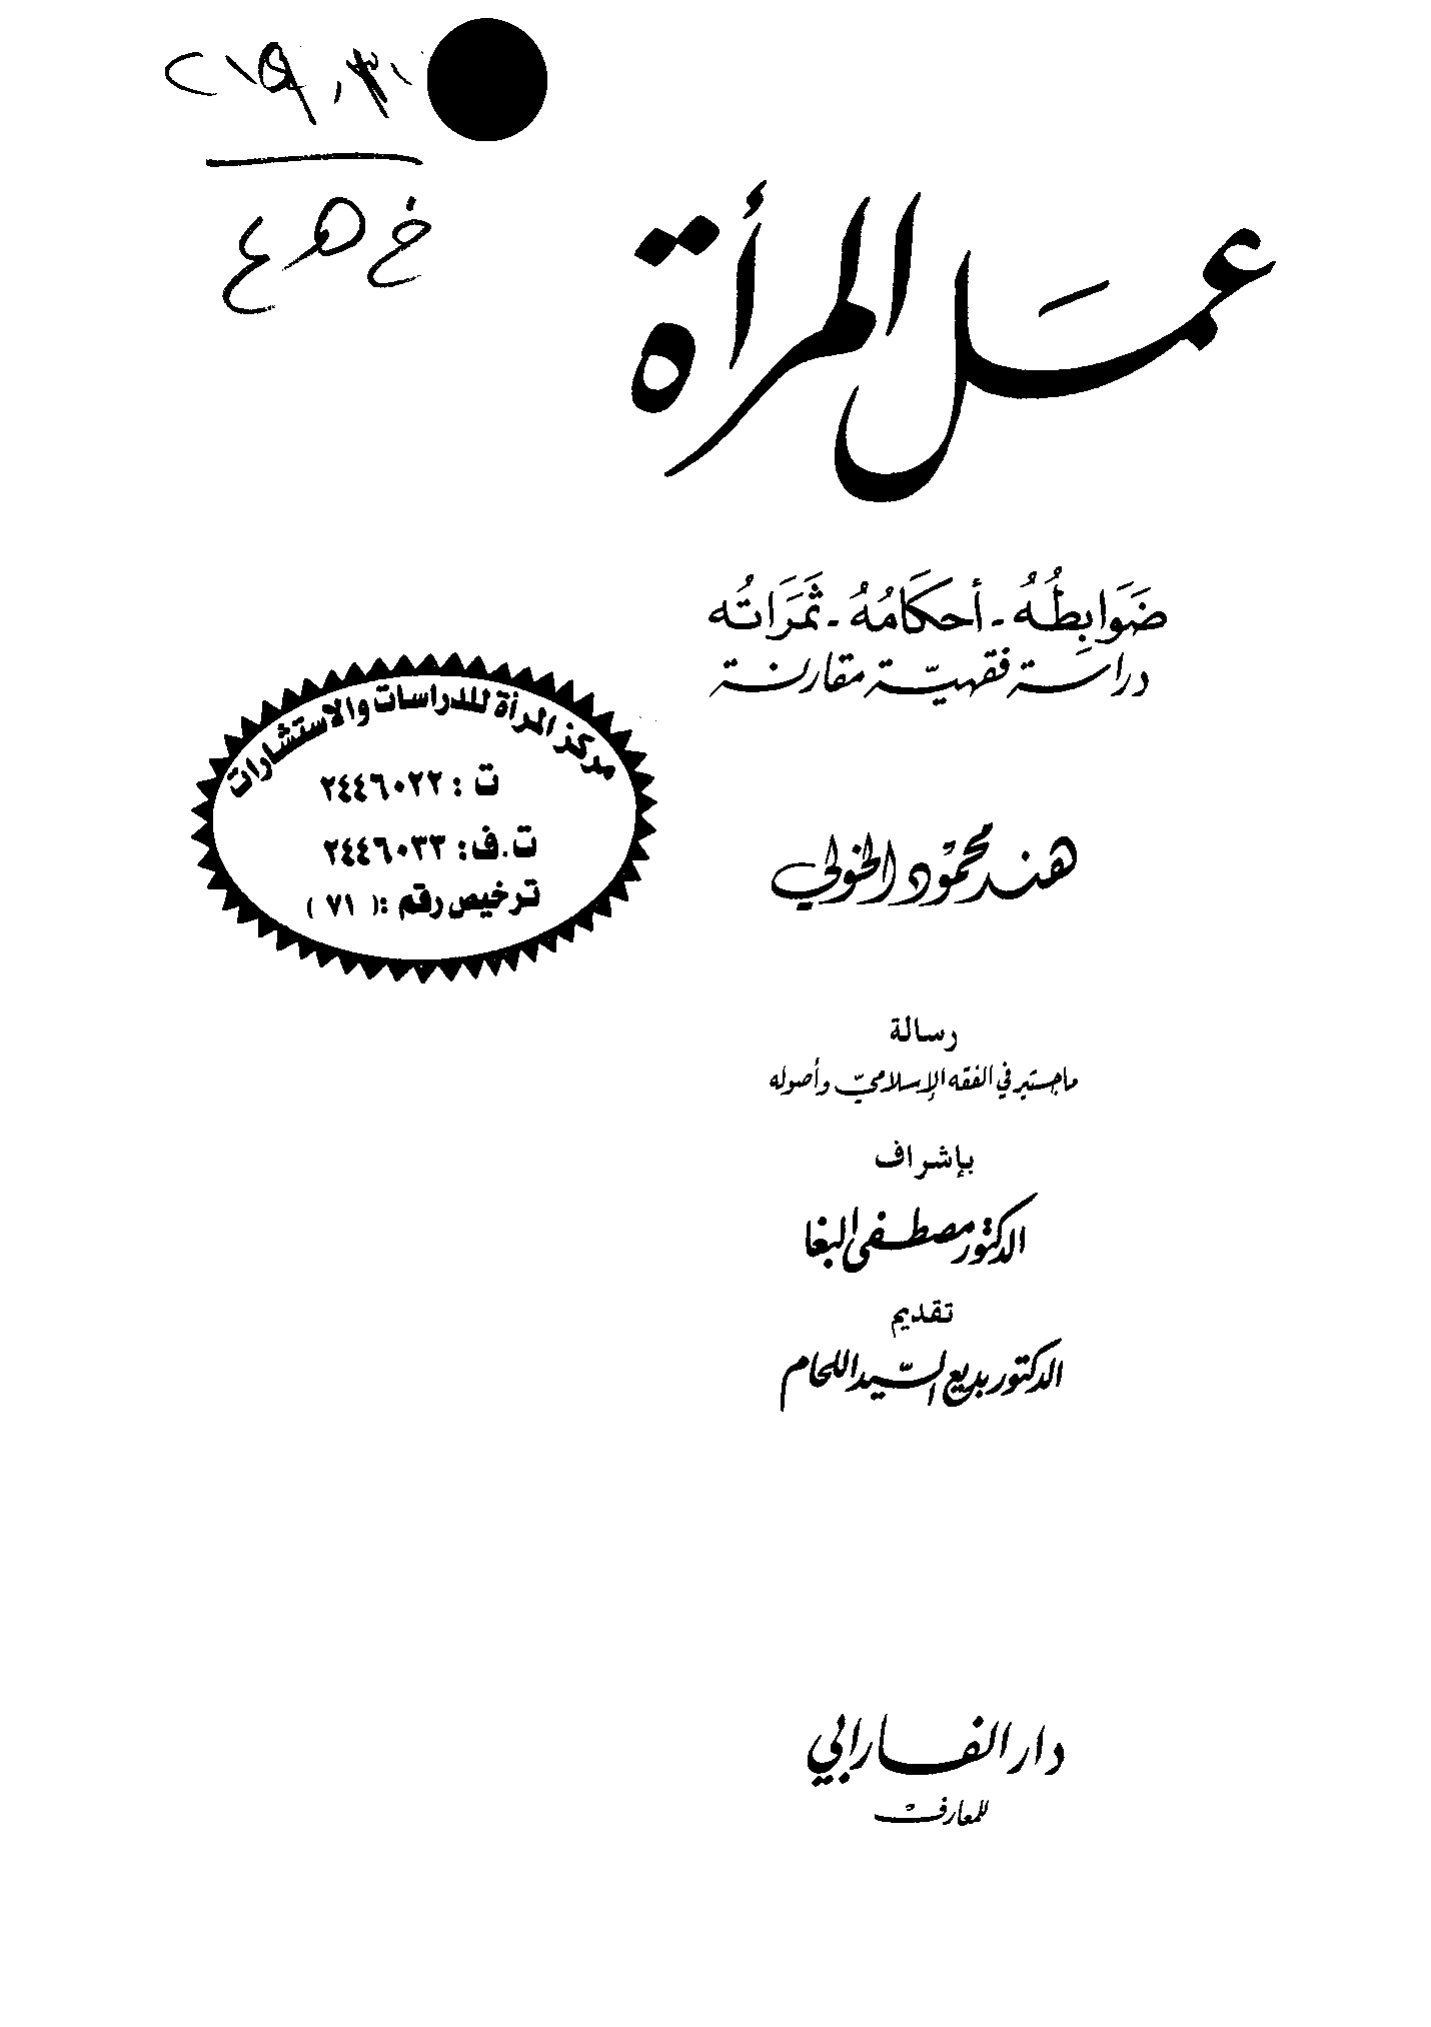 عمل المرأة
ضَوَابِطُهُ - أحكَامُهُ - ثَمَرَاتُه
دراسة فقهيّة مقارنة
مركز المرأة للدراسات والاستشارات
ت : ٢٤٤٦٠٢٢
ت.ف: ٢٤٤٦٠٣٣
ترخيص رقم :( ٧١ )
هند محمود الخولي
رسالة
ماجستير في الفقه الإسلاميّ وأصوله
بإشراف
الدكتور مصطفى البغا
تقديم
الدكتور بديع السّيد اللحام
دار الفارابي
للمعارف
خ هـ ع